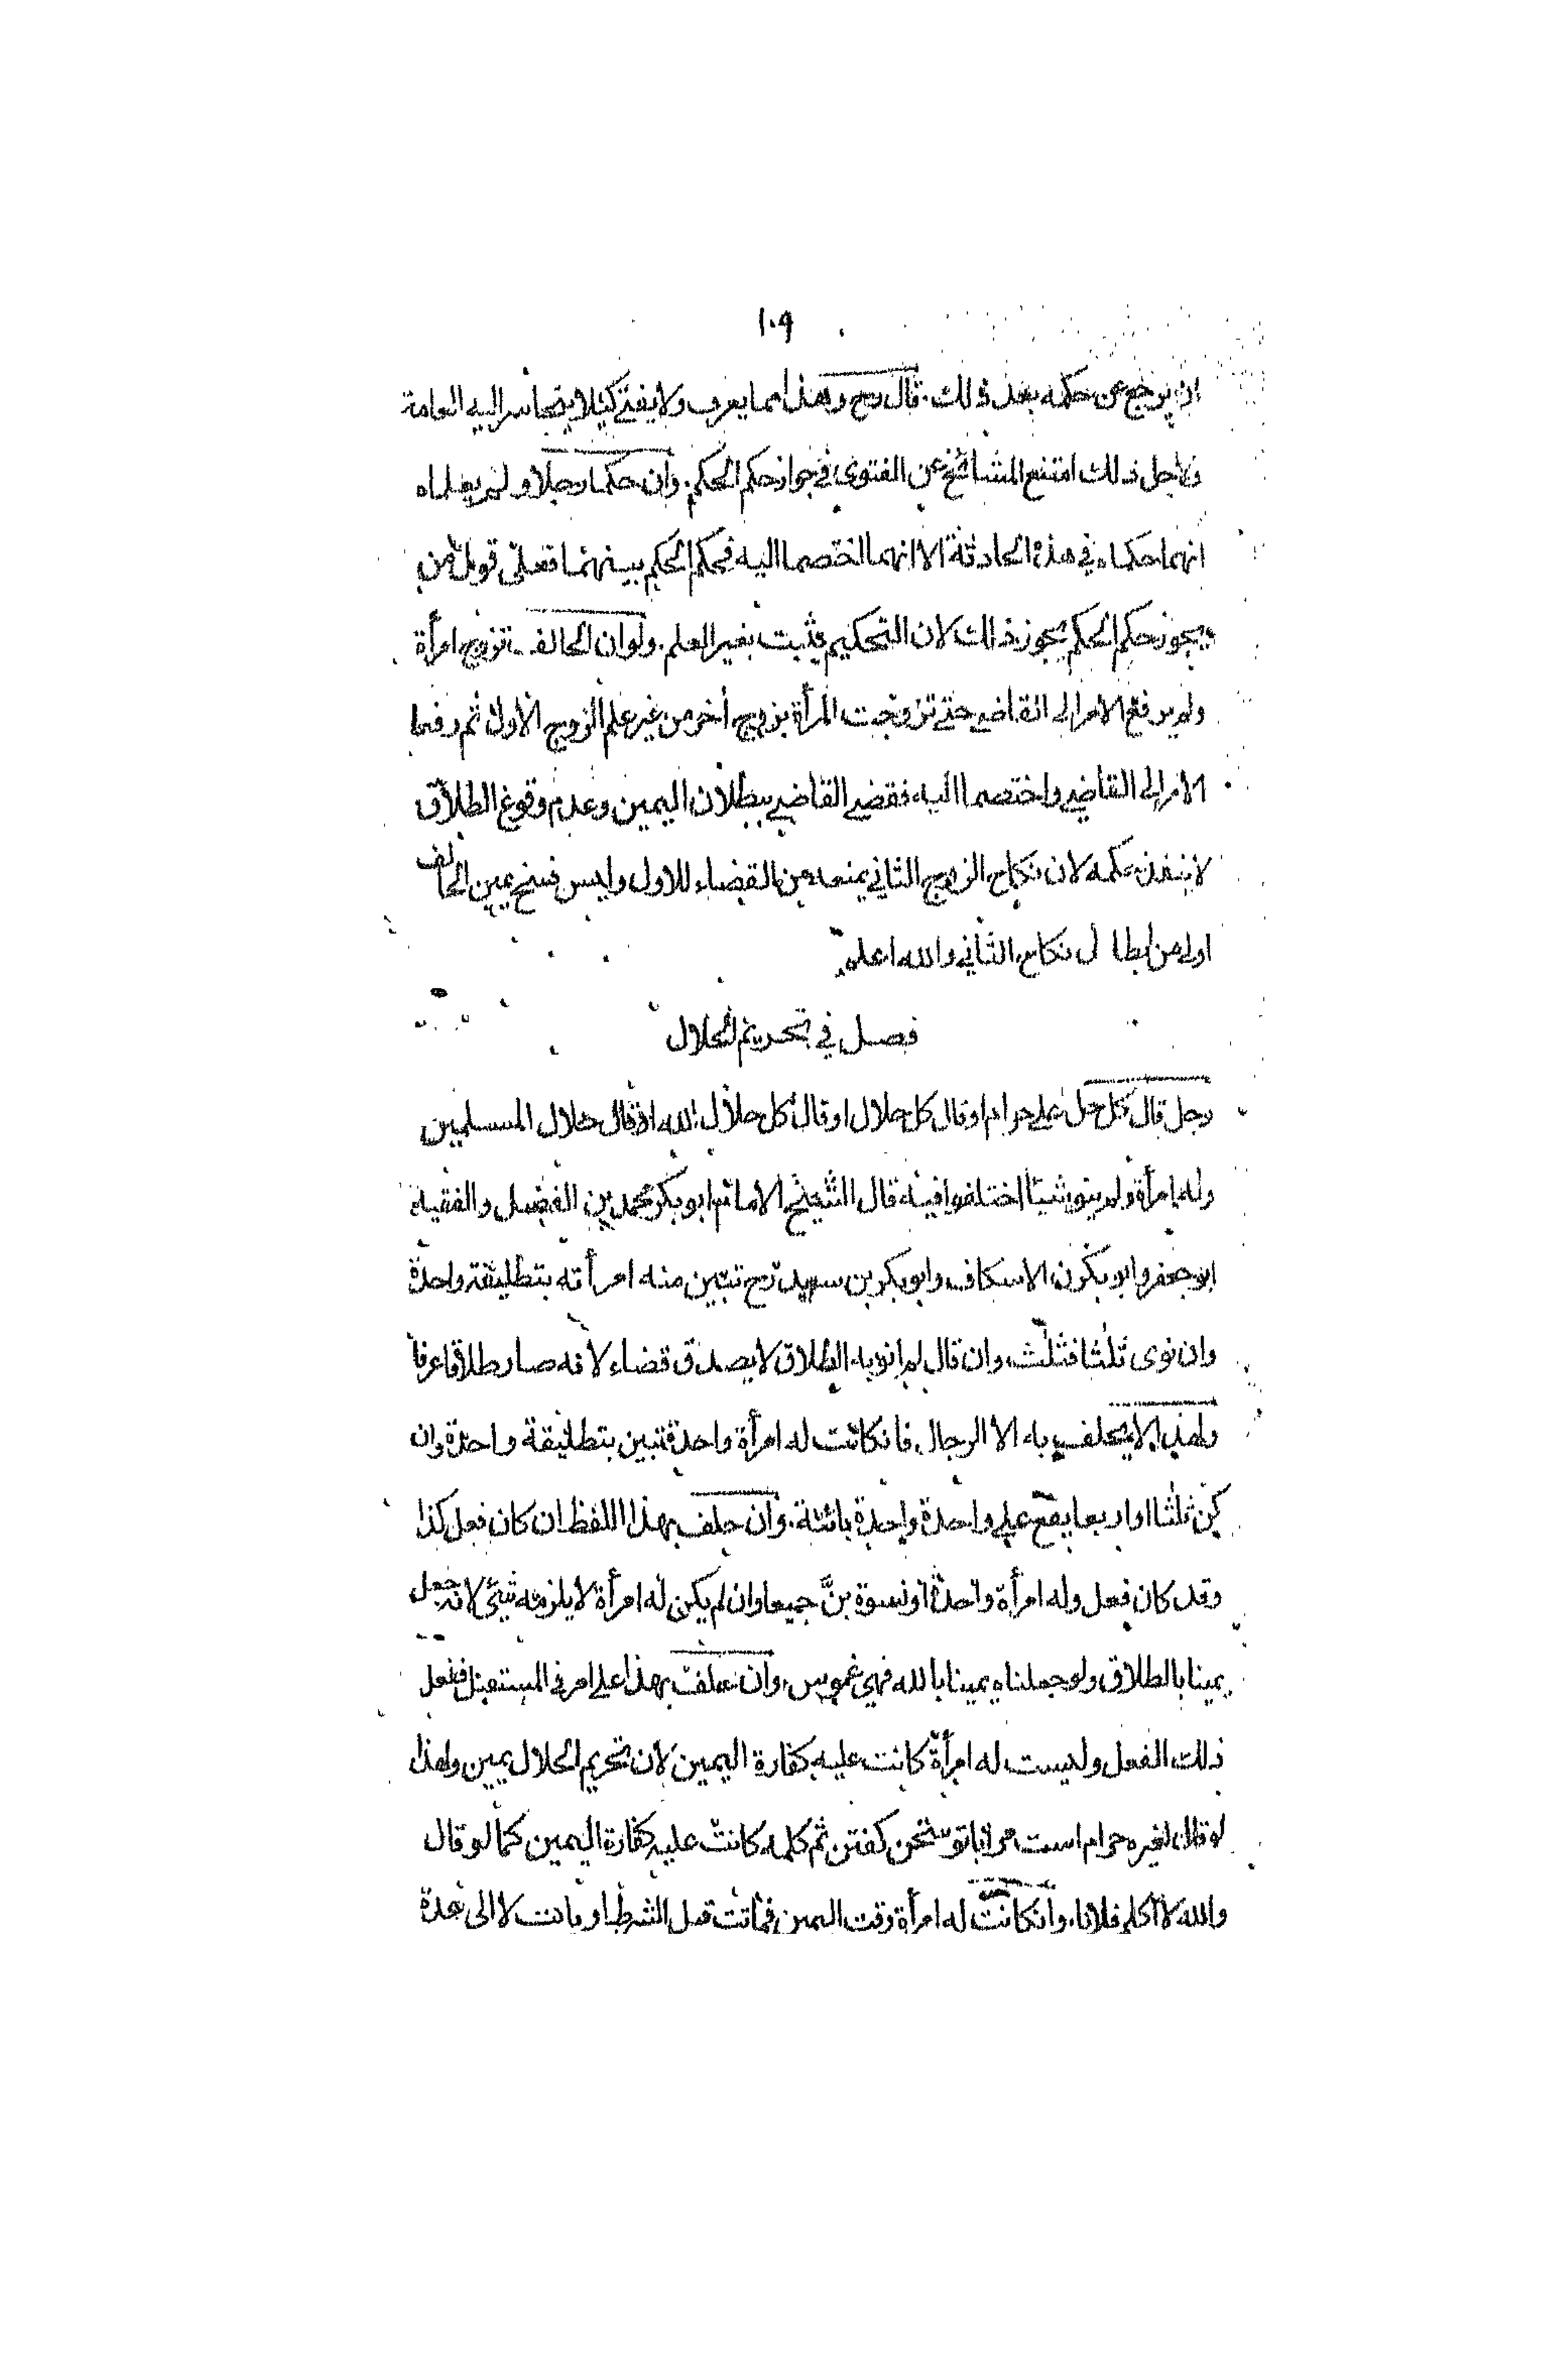 ١٠٩
ان يرجع عن حكمه بعد ذلك. قال رح وهذا مما يعرف ولا يفتى كيلا يتجاسر اليه العامة
ولاجل ذلك امتنع المشائخ عن الفتوى في جواز حكم المحكم. وان حكما رجلا ولم يعلماه
انهما حكماه في هذه الحادثة الا انهما اختصما اليه فحكم المحكم بينهما فعلى قول من
يجوز حكم المحكم يجوز ذلك لان التحكيم يثبت بغير العلم. ولو ان الحالف تزوج امرأة
ولم يرفع الامر الى القاضي حتى تزوجت المرأة بزوج أخر من غير علم الزوج الاول ثم رفعا
الامر الى القاضي واختصما اليه فقضى القاضي ببطلان اليمين وعدم وقوع الطلاق
لا ينفذ حكمه لان نكاح الزوج الثاني يمنعه من القضاء للاول وليس فسخ يمين الحالف
اولى من ابطال نكاح الثاني والله اعلم
فصل في تحريم الحلال
رجل قال كل حل علي حرام او قال كل حلال او قال كل حلال الله او قال حلال المسلمين
وله امرأة ولم ينو شيئا اختلفوا فيه قال الشيخ الامام ابو بكر محمد بن الفضل والفقيه
ابو جعفر وابو بكرن الاسكاف وابو بكر بن سعيد رح تبين منه امرأته بتطليقة واحدة
وان نوى ثلثا فثلث وان قال لم انو به الطلاق لا يصدق قضاء لانه صار طلاقا عرفا
ولهذا لا يحلف به الا الرجال فانكانت له امرأة واحدة تبين بتطليقة واحدة وان
كن ثلثا او اربعا يقع على واحدة واحدة بائنة. وان حلف بهذا اللفظ ان كان فعل كذا
وقد كان فعل وله امرأة واحدة او نسوة بنَّ جميعا وان لم يكن له امرأة لا يلزمه شيئ لانه جعل
يمينا بالطلاق ولو جعلناه يمينا بالله فهي غموس، وان حلف بهذا على امر في المستقبل ففعل
ذلك الفعل وليست له امرأة كانت عليه كفارة اليمين لان تحريم الحلال يمين ولهذا
لو قال لغيره حرام است مرا با تو سخن كفتن ثم كلمه كانت عليه كفارة اليمين كما لو قال
والله لا اكلم فلانا، وانكانت له امرأة وقت اليمين فماتت قبل الشرط او بانت لا الى عدة